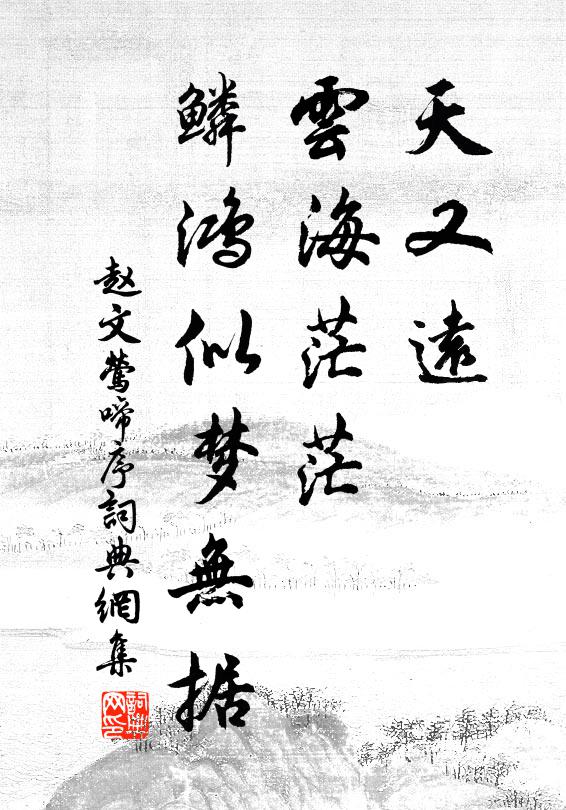 天又遠
雲海茫茫
鱗鴻似梦無据
赵文鶯啼序詞典網集